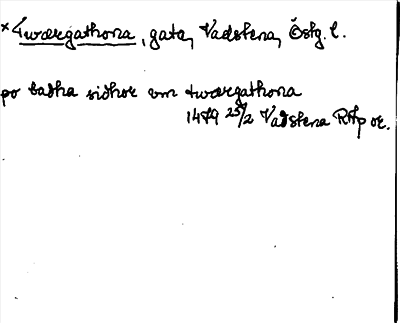 × Twærgathona, gata, Vadstena, Östg. l.
po badha sidhor vm twærgathona
1479 25/2 Vadstena RAp or.